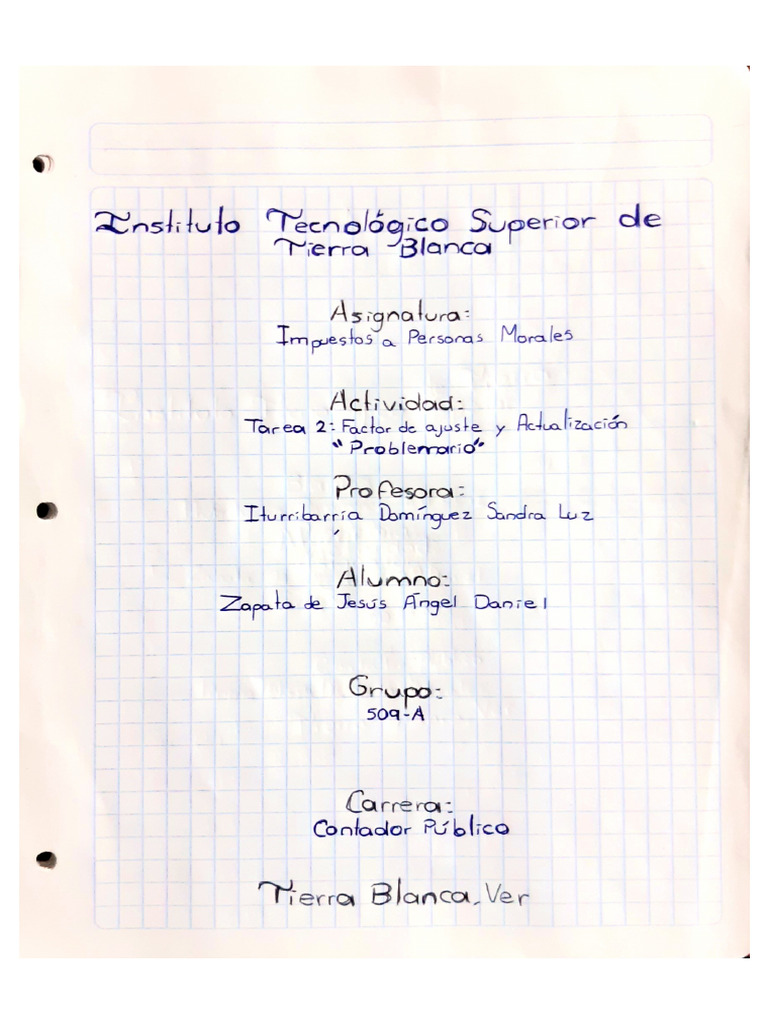 Instituto Tecnológico Superior de
Tierra Blanca
Asignatura:
Impuestos a Personas Morales
Actividad:
Tarea 2: Factor de ajuste y Actualización
"Problemario"
Profesora:
Iturribarría Domínguez Sandra Luz
Alumno:
Zapata de Jesús Ángel Daniel
Grupo:
509-A
Carrera:
Contador Público
Tierra Blanca, Ver